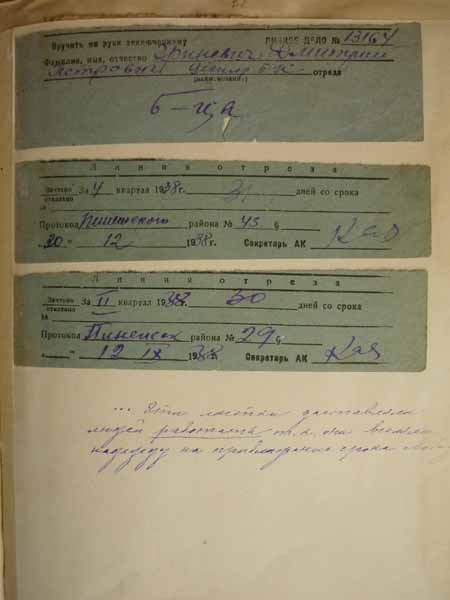 Вручить на руки заключенному ЛИЧНОЕ ДЕЛО № 13164
Фамилия, имя, отчество Зринович Дмитрий
Петрович отряда
(наим. колонии)
Б-ца
Линия отреза
Зачтено За 4 квартал 1938г. 31 дней со срока
отказано
№
Протокол Пинежского района № 43 g
"20" 12 1938г. Секретарь АК
Линия отреза
Зачтено За III квартал 1938г. 30 дней со срока
отказано
№
Протокол Пинежск района № 29 g
12 IX 1938г. Секретарь АК
... Эти листки заставляли
людей работать т.к. они вселяли
надежду на приближение срока